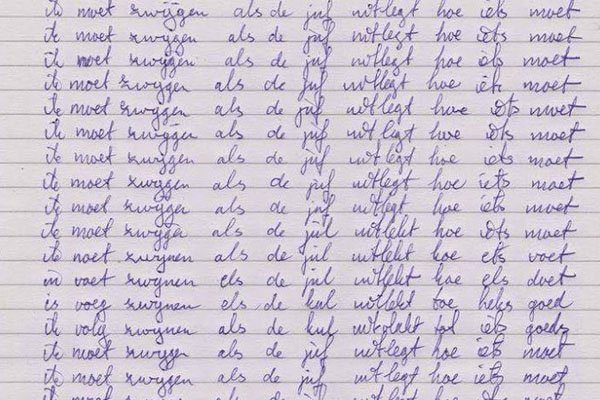 ik moet zwijgen als de juf uitlegt hoe iets moet
ik moet zwijgen als de juf uitlegt hoe iets moet
ik moet zwijgen als de juf uitlegt hoe iets moet
ik moet zwijgen als de juf uitlegt hoe iets moet
ik moet zwijgen als de juf uitlegt hoe iets moet
ik moet zwijgen als de juf uitlegt hoe iets moet
ik moet zwijgen als de juf uitlegt hoe iets moet
ik moet zwijgen als de juf uitlegt hoe iets moet
ik moet zwijgen als de juf uitlegt hoe iets moet
ik moet zwijgen als de jul uitlekt hoe iets moet
ik noet zwijnen als de jul uitlekt hoe ets voet
in voet zwijnen els de jul uitlekt hoe els doet
is voeg zwijnen els de kul uitlekt toe heks goed
ik volg zwijnen als de kul uitplakt tot iets goeds
ik moet zwijgen als de juf uitlegt hoe iets moet
ik moet zwijgen als de juf uitlegt hoe iets moet